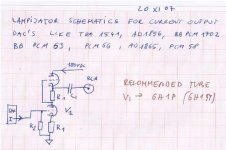 20 XI 07
LAMPIZATOR SCHEMATICS FOR CURRENT OUTPUT
DAC's LIKE TDA 1541, AD1856, BB PCM 1702
BB PCM 63, PCM 56, AD1865, PCM 58
185VDC
RCA
C1
R1
V1
RECOMMENDED TUBE
V1 → 6H1P (6H1П)
R2
R1